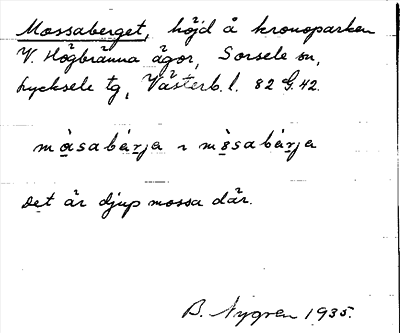 Mossaberget, höjd å kronoparken
V. Högbränna ägor, Sorsele sn,
Lycksele tg, Västerb. l. 82 G. 42.
måsabàrja ~ mòsabàrja
Det är djup mossa där.
B. Nygren 1935.